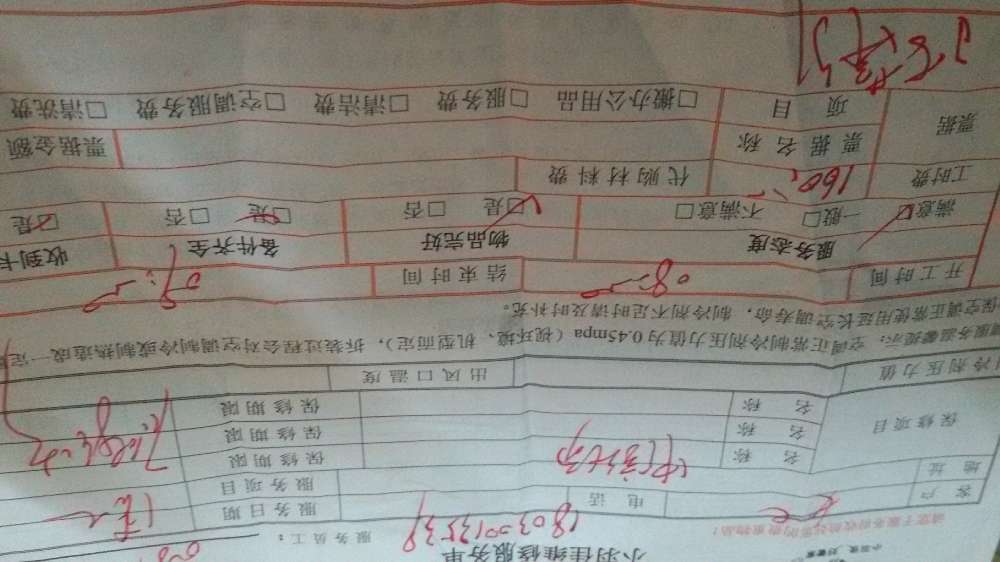 小羽佳维修服务单
服务员工：
请您于服务前收好您的贵重物品！
客户 电话 服务日期
18030013538
地址 服务项目
保修项目 名称 保修期限
名称 保修期限
名称 保修期限
冷剂压力值 出风口温度
服务温馨提示：空调正常制冷剂压力值为0.45mpa（视环境、机型而定），拆装过程会对空调制冷或制热造成一定
保空调正常使用延长空调寿命，制冷剂不足时请及时补充。
开工时间 08:00 结束时间 09:00
服务态度 物品完好 备件齐全 收到卡
满意□ 一般□ 不满意□ □是 □否 □是 □否 □是
工时费 160 代购材料费
票据 票据名称 票据金额
项目 □搬办公用品 □服务费 □清洁费 □空调服务费 □清洗费